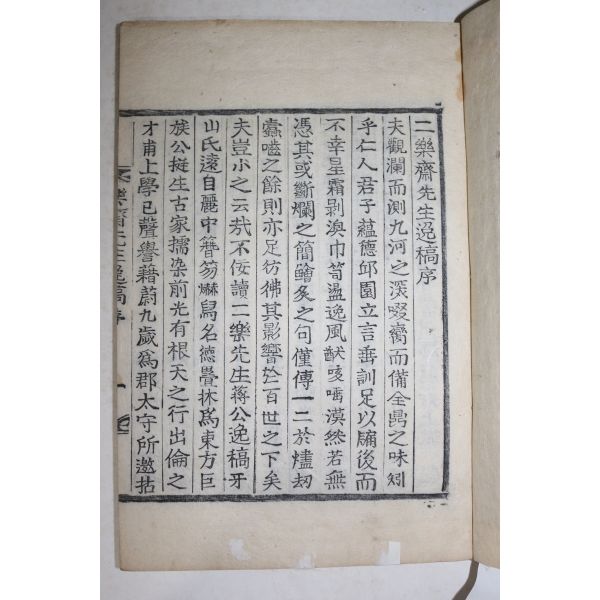 二樂齋先生逸稿序
夫觀瀾而測九河之深啜臠而備全鼎之味矧
乎仁人君子蘊德邱園立言垂訓足以牖後而
不幸星霜剝渙巾笥盪逸風猷咳唾漠然若無
憑其或斷爛之簡膾炙之句僅傳一二於燼刼
蠹嚙之餘則亦足彷彿其影響於百世之下矣
夫豈小之云㢤不佞讀二樂先生蔣公逸稿牙
山氏遠自麗中簪笏嚇舃名德疊秝爲東方巨
族公挺生古家擩染前光有根天之行出倫之
才甫上學已聲譽藉蔚九歲爲郡太守所邀拈
二樂齋先生逸稿序 一